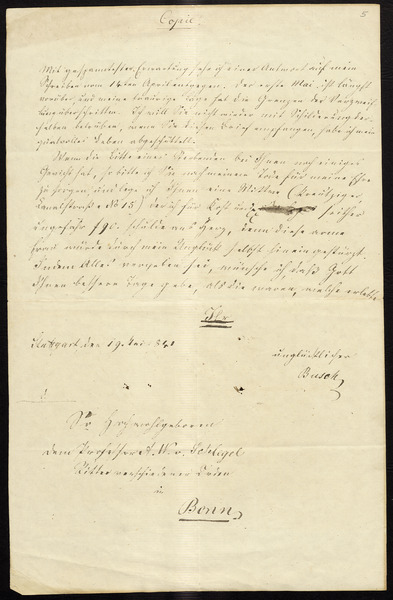 Copie.
5
Mit gespanntester Erwartung sehe ich einer Antwort auf mein
Schreiben vom 14ten April entgegen. Der erste Mai ist längst
vorüber und meine traurige Lage hat die Grenzen der Verzweif-
lung überschritten. Ich will Sie nicht wieder mit Schilderung der-
selben betrüben, wenn Sie diesen Brief empfangen, habe ich mein
qualvolles Leben abgeschüttelt.
Wenn die Bitte eines Sterbenden bei Ihnen noch einiges
Gewicht hat, so bitte ich Sie nach meinem Tode für meine Ehre
zu sorgen und lege ich Ihnen eine Wittwe (Kreutziger,
Canalstraße No 15) der ich für Kost und seither
ungefähr f 90. schulde ans Herz, denn diese arme
Frau wurde durch mein Unglück selbst hineingestürzt.
Indem Alles vergeben sei, wünsche ich, daß Gott
Ihnen bessere Tage gebe, als die waren, welche erlebte
Ihr
Stuttgart den 19. Mai 1841
unglücklicher
Busch
Sr Hochwohlgeboren
dem Professor A. W. v. Schlegel
Ritter verschiedener Orden
in
Bonn